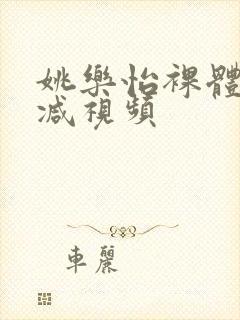 姚樂怡裸體
减視頻
車麗